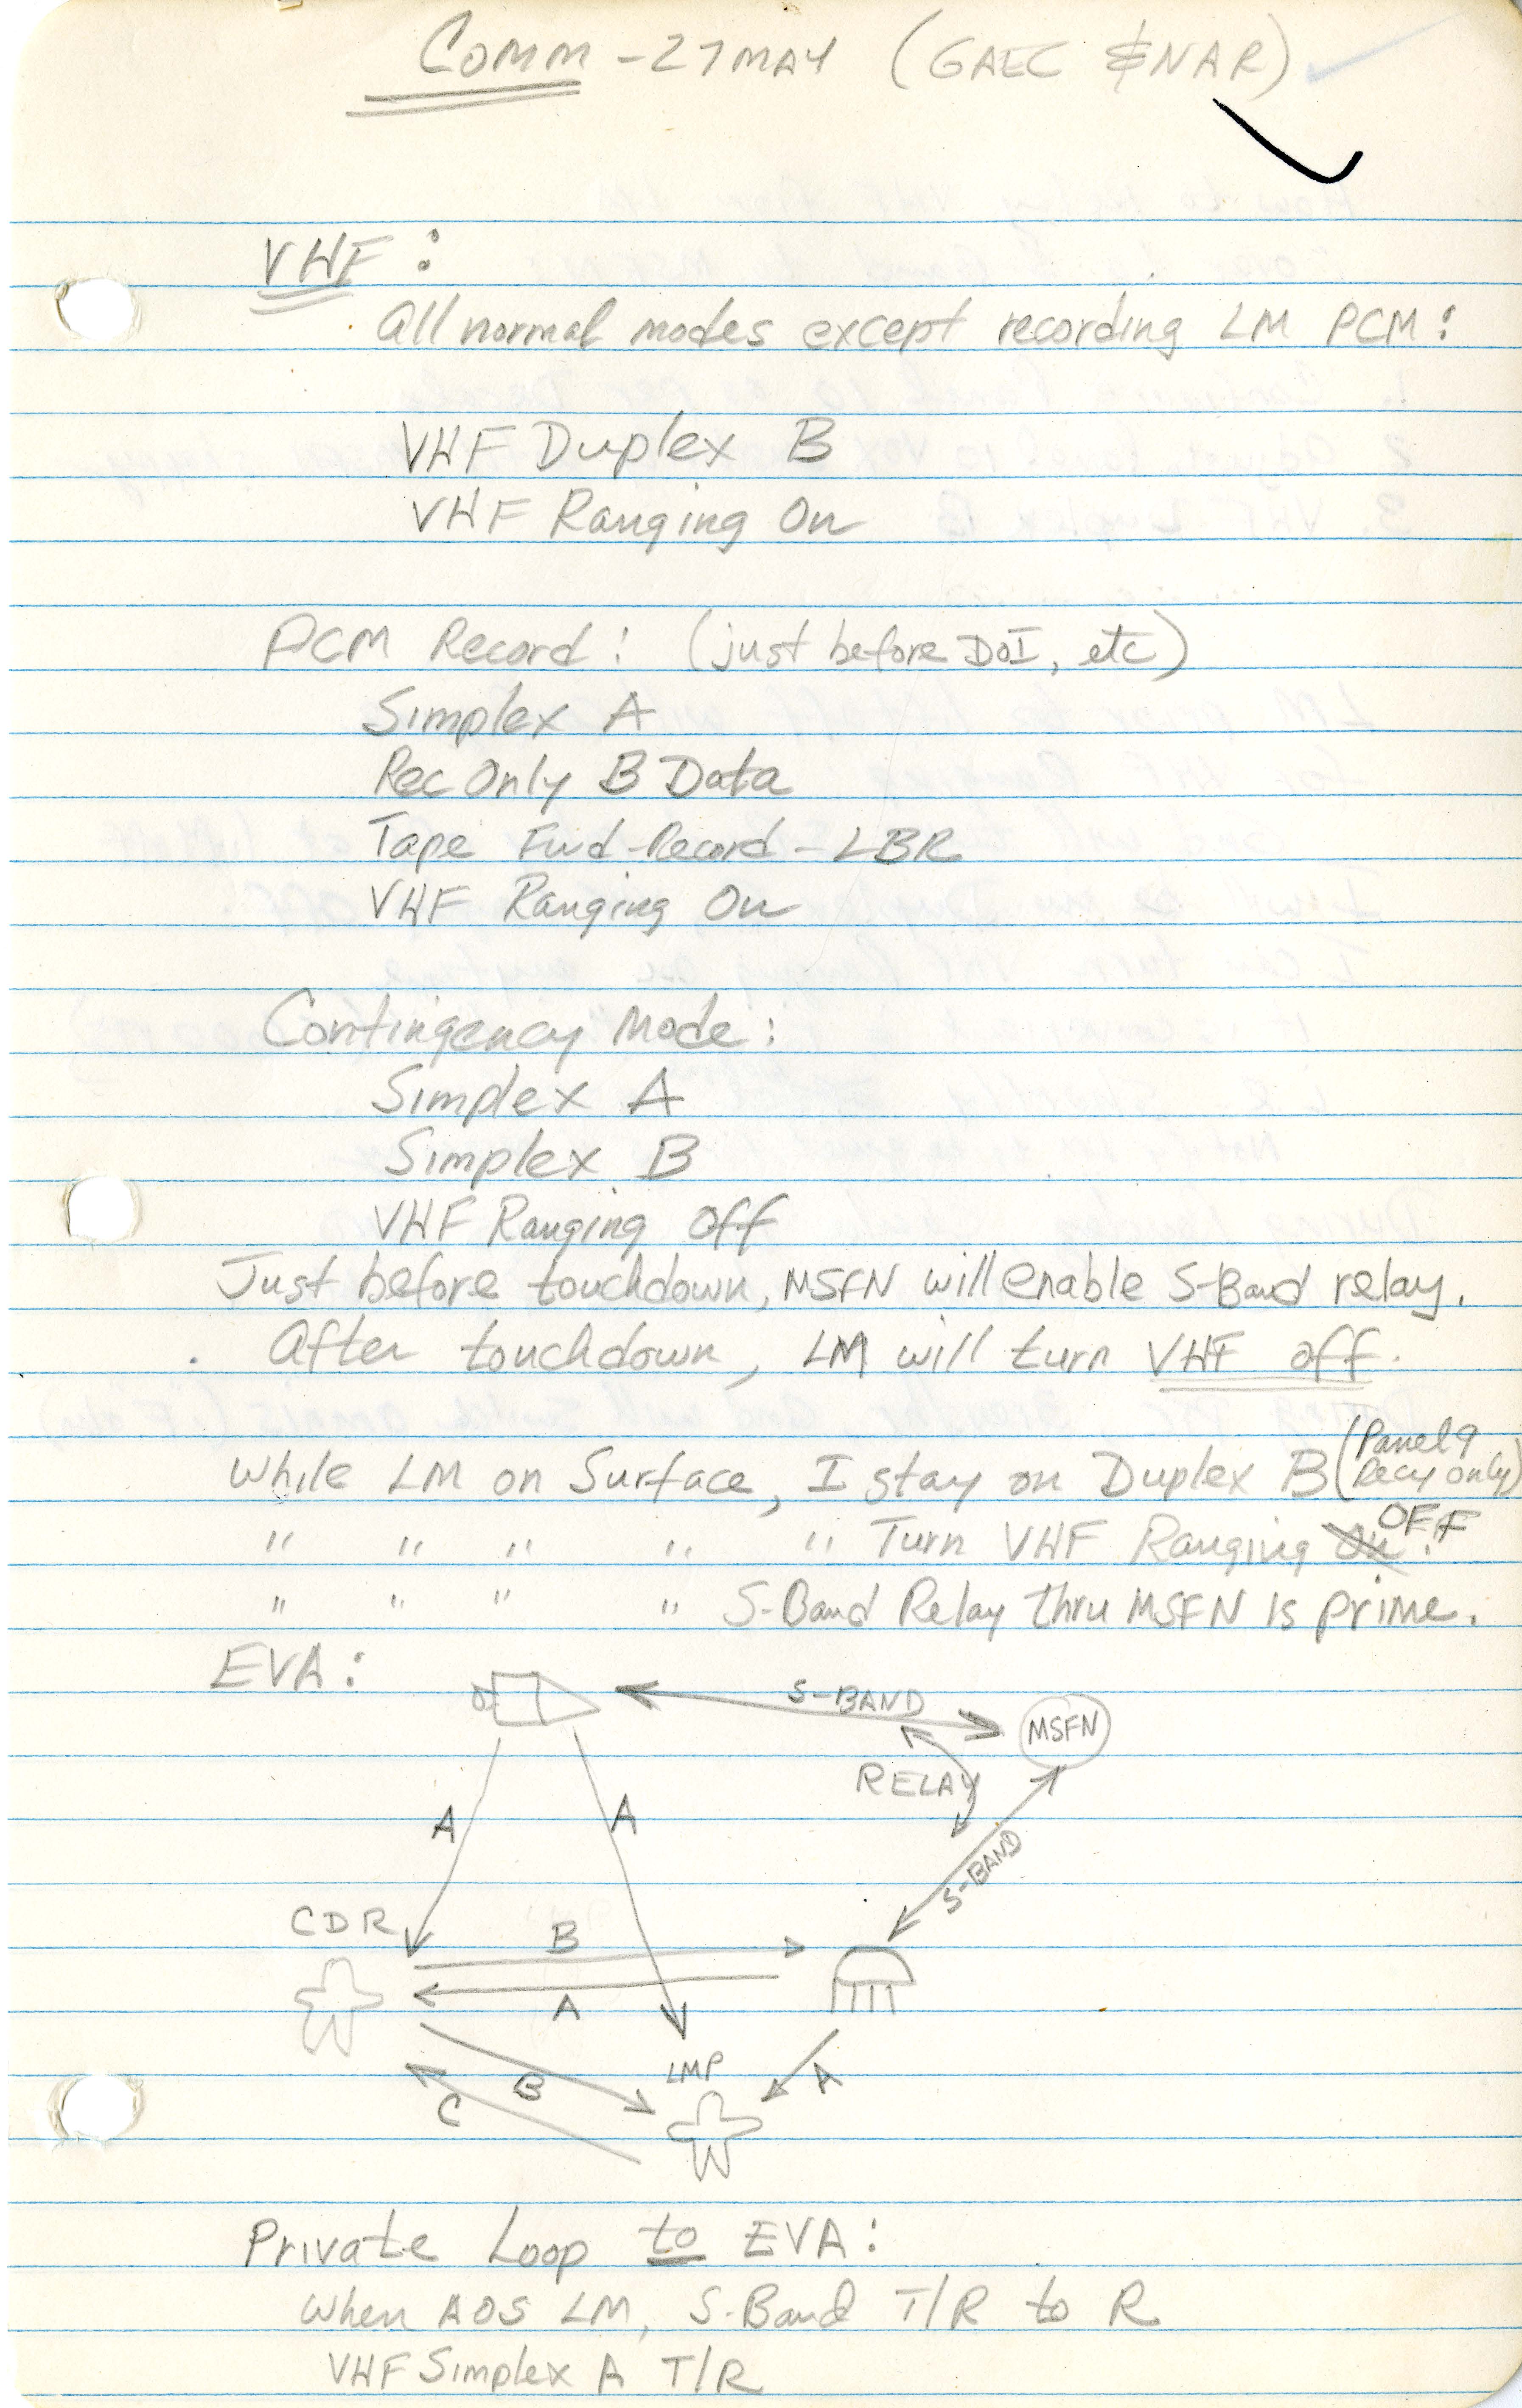 Comm - 27 MAY (GAEC & NAR)
VHF:
All normal modes except recording LM PCM:
VHF Duplex B
VHF Ranging On
PCM Record: (just before DOI, etc)
Simplex A
Rec Only B Data
Tape Fwd-Record-LBR
VHF Ranging On
Contingency Mode:
Simplex A
Simplex B
VHF Ranging Off
Just before touchdown, MSFN will enable S-Band relay.
After touchdown, LM will turn VHF off.
While LM on Surface, I stay on Duplex B (Panel 9 Recy only)
" " " " " Turn VHF Ranging On. OFF
" " " " S-Band Relay thru MSFN is prime.
EVA:
S-BAND
MSFN
RELAY
A A
S-BAND
CDR
B
A
LMP
B
A
C
Private Loop to EVA:
When AOS LM, S-Band T/R to R
VHF Simplex A T/R